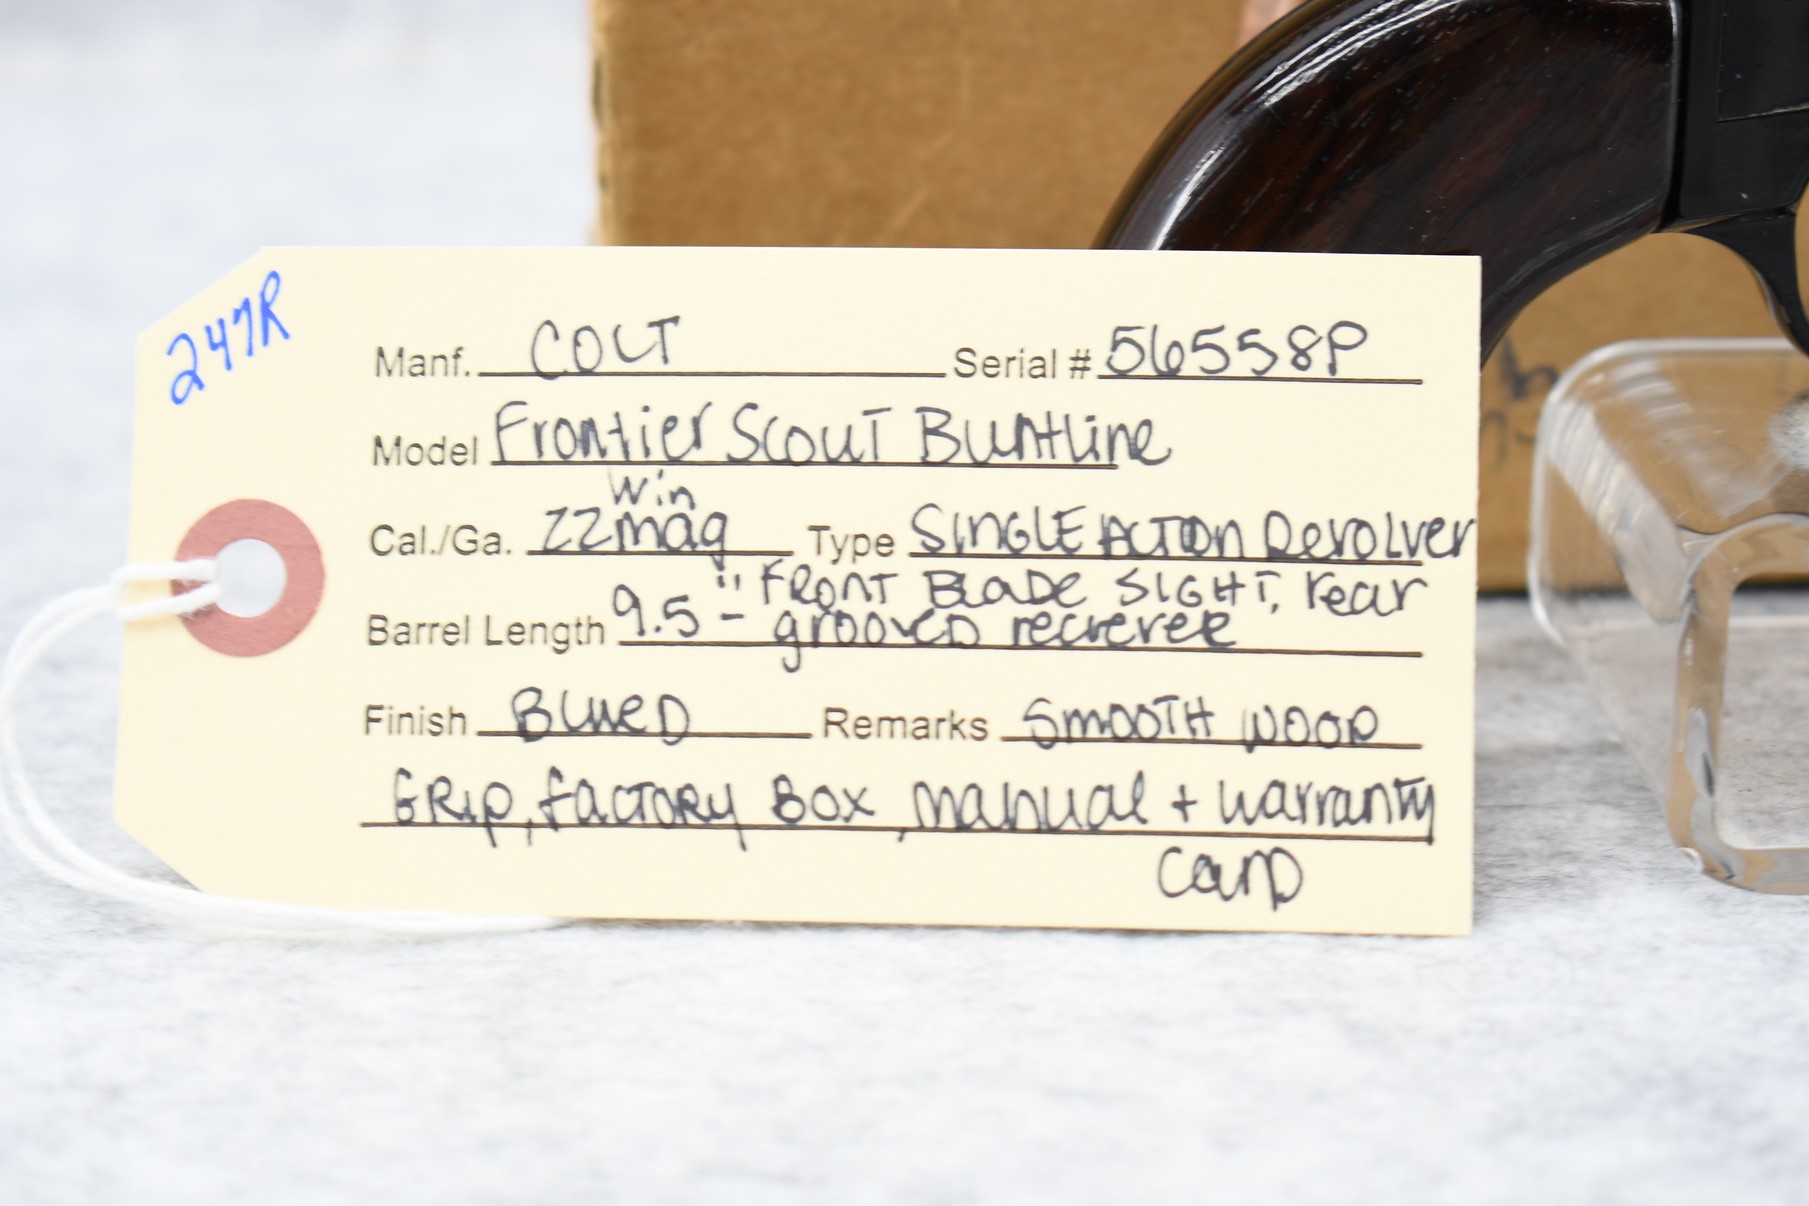 247R
Manf. COLT Serial # 56558P
Model Frontier Scout Buntline
Win
Cal./Ga. 22mag Type SINGLE ACTION Revolver
" FRONT BLADE SIGHT, rear
Barrel Length 9.5 - grooved
Finish BLUED Remarks SMOOTH WOOD
GRip, factory Box, manual + warranty
card